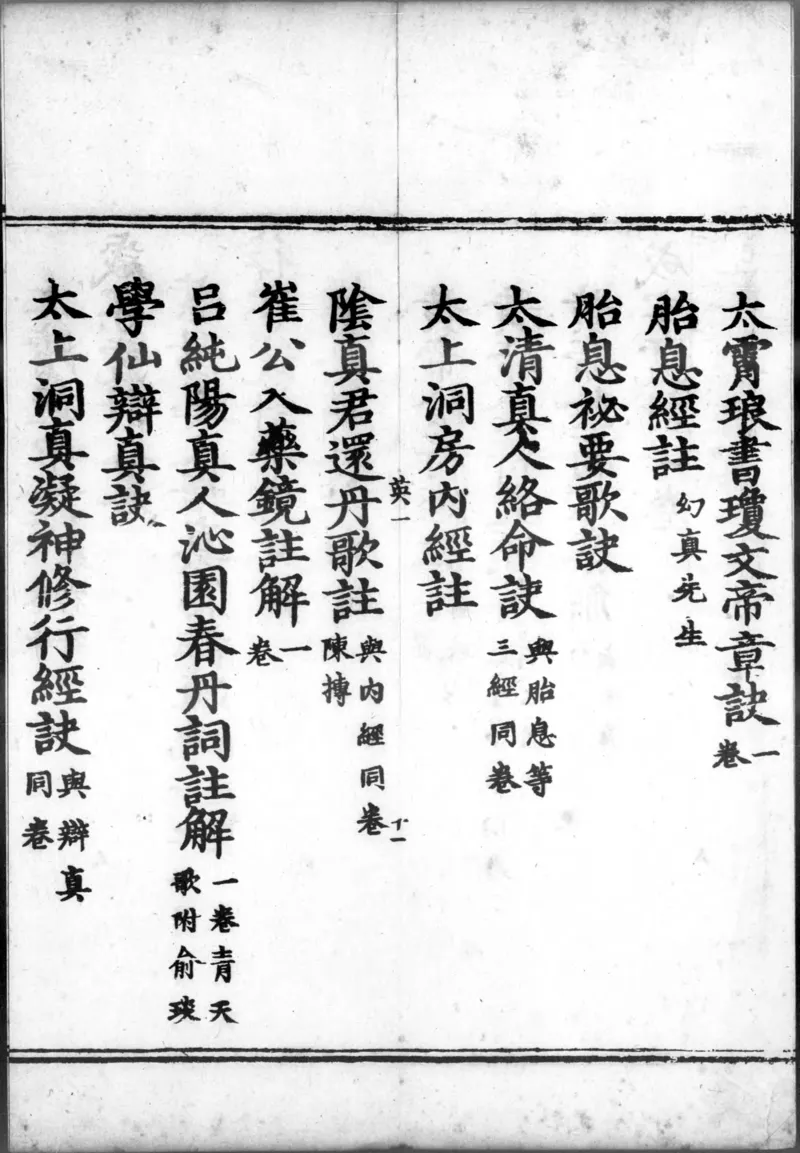 太霄琅書瓊文帝章訣 一卷
胎息經註 幻真先生
胎息祕要歌訣
太清真人絡命訣 與胎息等三經同卷
太上洞房內經註
英一
十一
陰真君還丹歌註 與內經同卷 陳摶
崔公入藥鏡註解 一卷
呂純陽真人沁園春丹詞註解 一卷青天歌附俞琰
學仙辯真訣
太上洞真凝神修行經訣 與辯真同卷